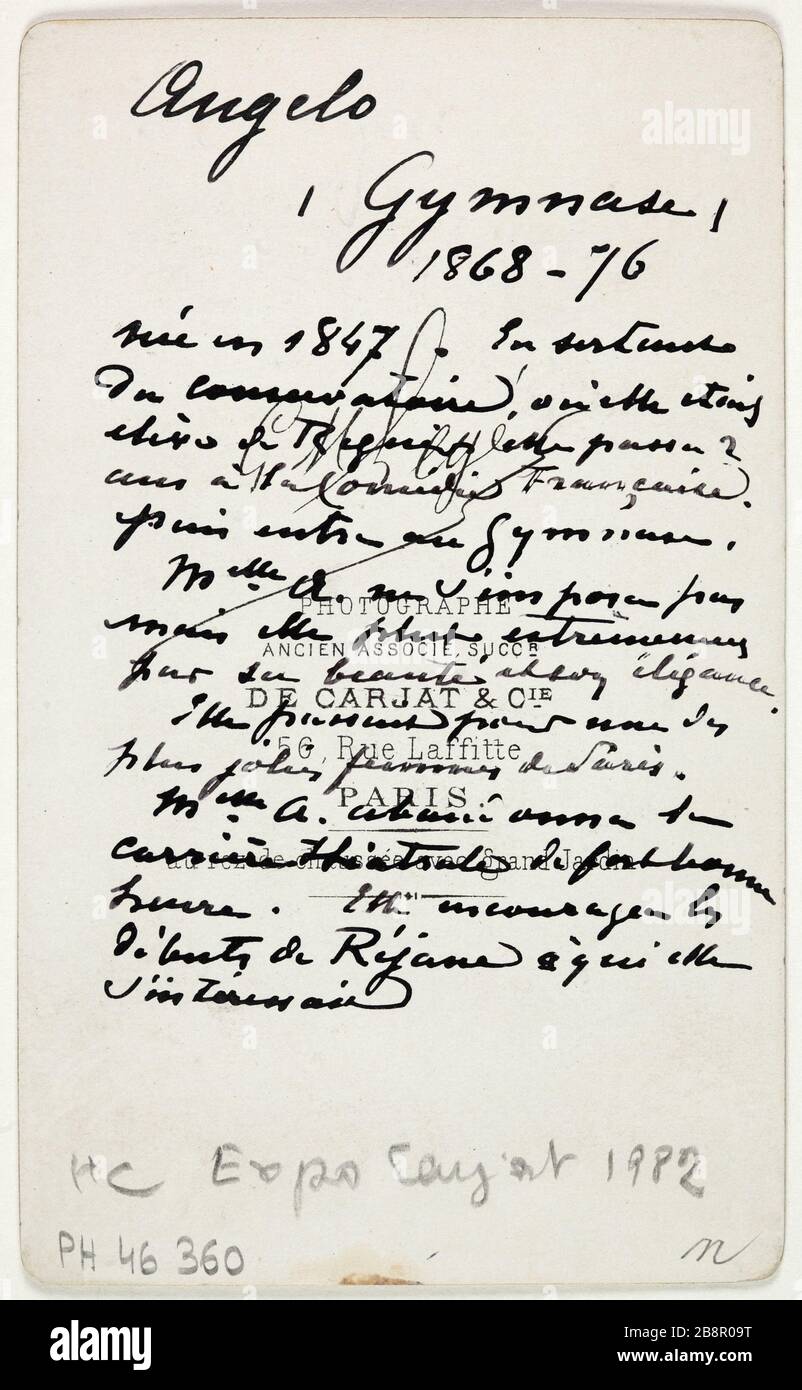 Angelo
( Gymnase )
1868-76
née en 1847. En sortant
du conservatoire, où elle était
élève de Régnier, elle passa 2
ans à la Comédie Française.
puis entra au Gymnase.
Melle A. ne s'imposa pas
PHOTOGRAPHE
mais elle plut extrêmement
ANCIEN ASSOCIÉ, SUCCR
par sa beauté et son élégance.
DE CARJAT & CIE
Elle passait pour une des
56, Rue Laffitte
plus jolies femmes de Paris.
PARIS.
Melle A. abandonna la
carrière théatrale de fort bonne
au rez de chaussée avec Grand Jardin
heure. Elle encouragea les
débuts de Réjane à qui elle
s'intéressait
HC Expo Carjat 1982
PH 46 360
n
alamy
Image ID: 2B8R09T
www.alamy.com